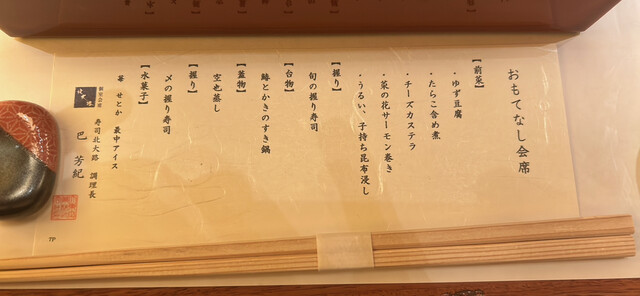 おもてなし会席
【前菜】
・ゆず豆腐
・たらこ含め煮
・チーズカステラ
・菜の花サーモン巻き
・うるい、子持ち昆布浸し
【握り】
旬の握り寿司
【台物】
鰆とかきのすき鍋
【蓋物】
空也蒸し
【握り】
〆の握り寿司
【水菓子】
苺 せとか 最中アイス
寿司北大路 調理長
巴 芳紀
7P